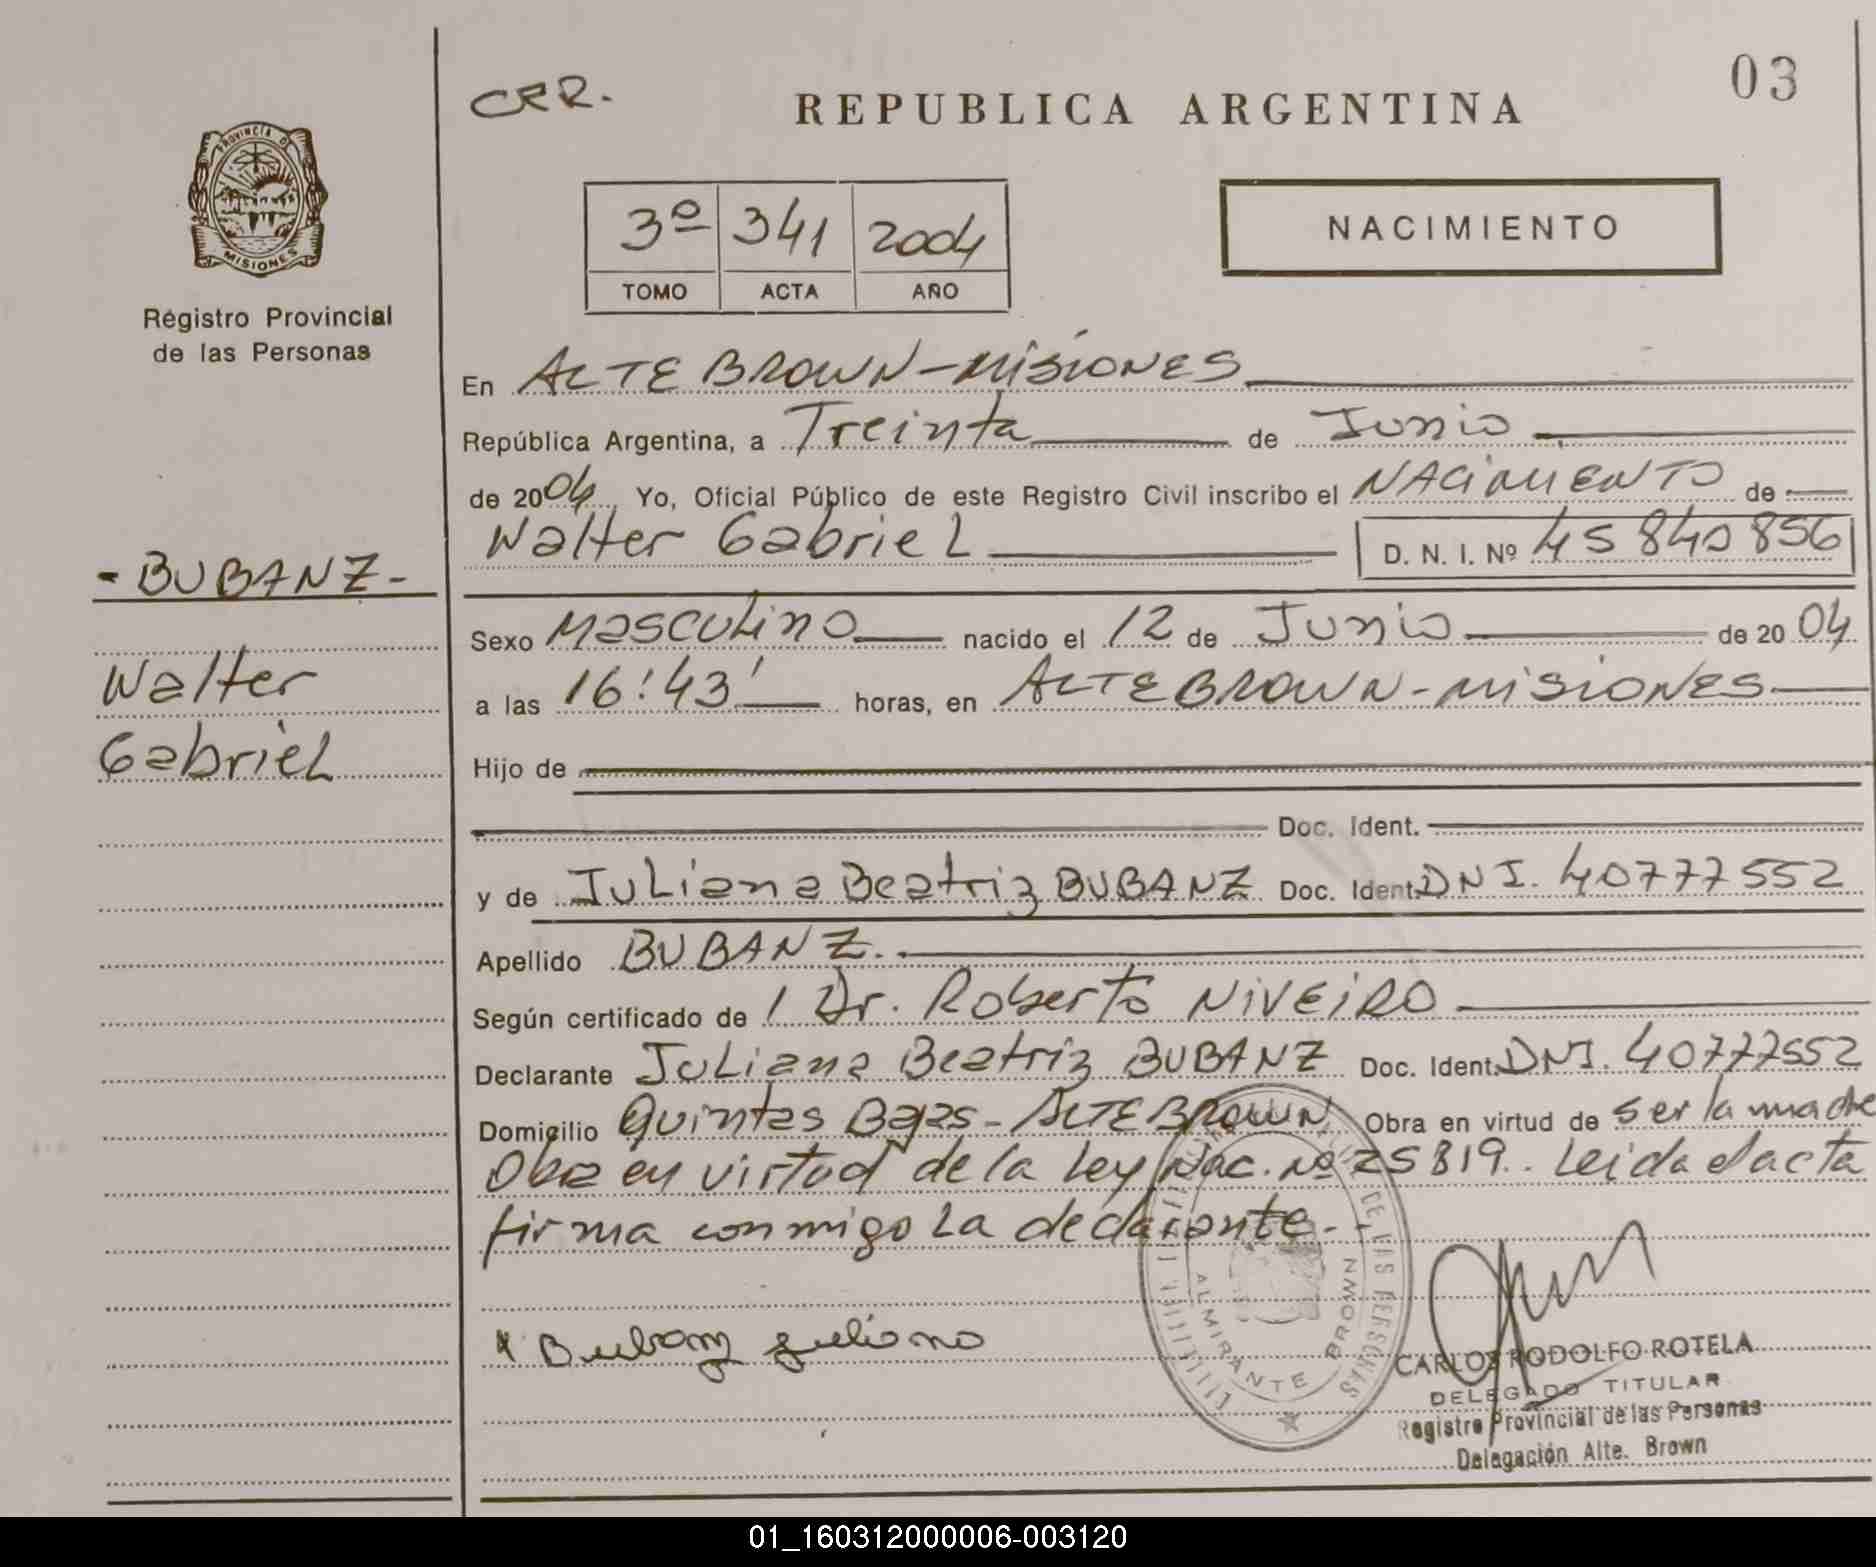 CRR.
REPUBLICA ARGENTINA
03
PROVINCIA D
MISIONES
Régistro Provincial
de las Personas
3º 341 2004
TOMO ACTA AÑO
NACIMIENTO
En ALTE BROWN-MISIONES
República Argentina, a Treinta de Junio
de 2004 Yo, Oficial Público de este Registro Civil inscribo el NACIMIENTO de
Walter Gabriel D. N. I. Nº 45 840 856
-BUBANZ-
Walter
Gabriel
Sexo Masculino nacido el 12 de Junio de 2004
a las 16:43' horas, en ALTE BROWN-MISIONES
Hijo de
Doc. Ident.
y de Juliana Beatriz BUBANZ Doc. Ident. DNI. 40777552
Apellido BUBANZ.
Según certificado de / Dr. Roberto NIVEIRO
Declarante Juliana Beatriz BUBANZ Doc. Ident. DNI. 40777552
Domicilio Quintas Bajas-ALTE BROWN Obra en virtud de ser la madre
Obra en virtud de la Ley Nac. Nº 25819.. Leida el acta
firma conmigo La declarante.
x Bubanz Juliana
DE LAS PERSONAS
ALMIRANTE BROWN
CARLOS RODOLFO ROTELA
DELEGADO TITULAR
Registro Provincial de las Personas
Delegación Alte. Brown
01_160312000006-003120